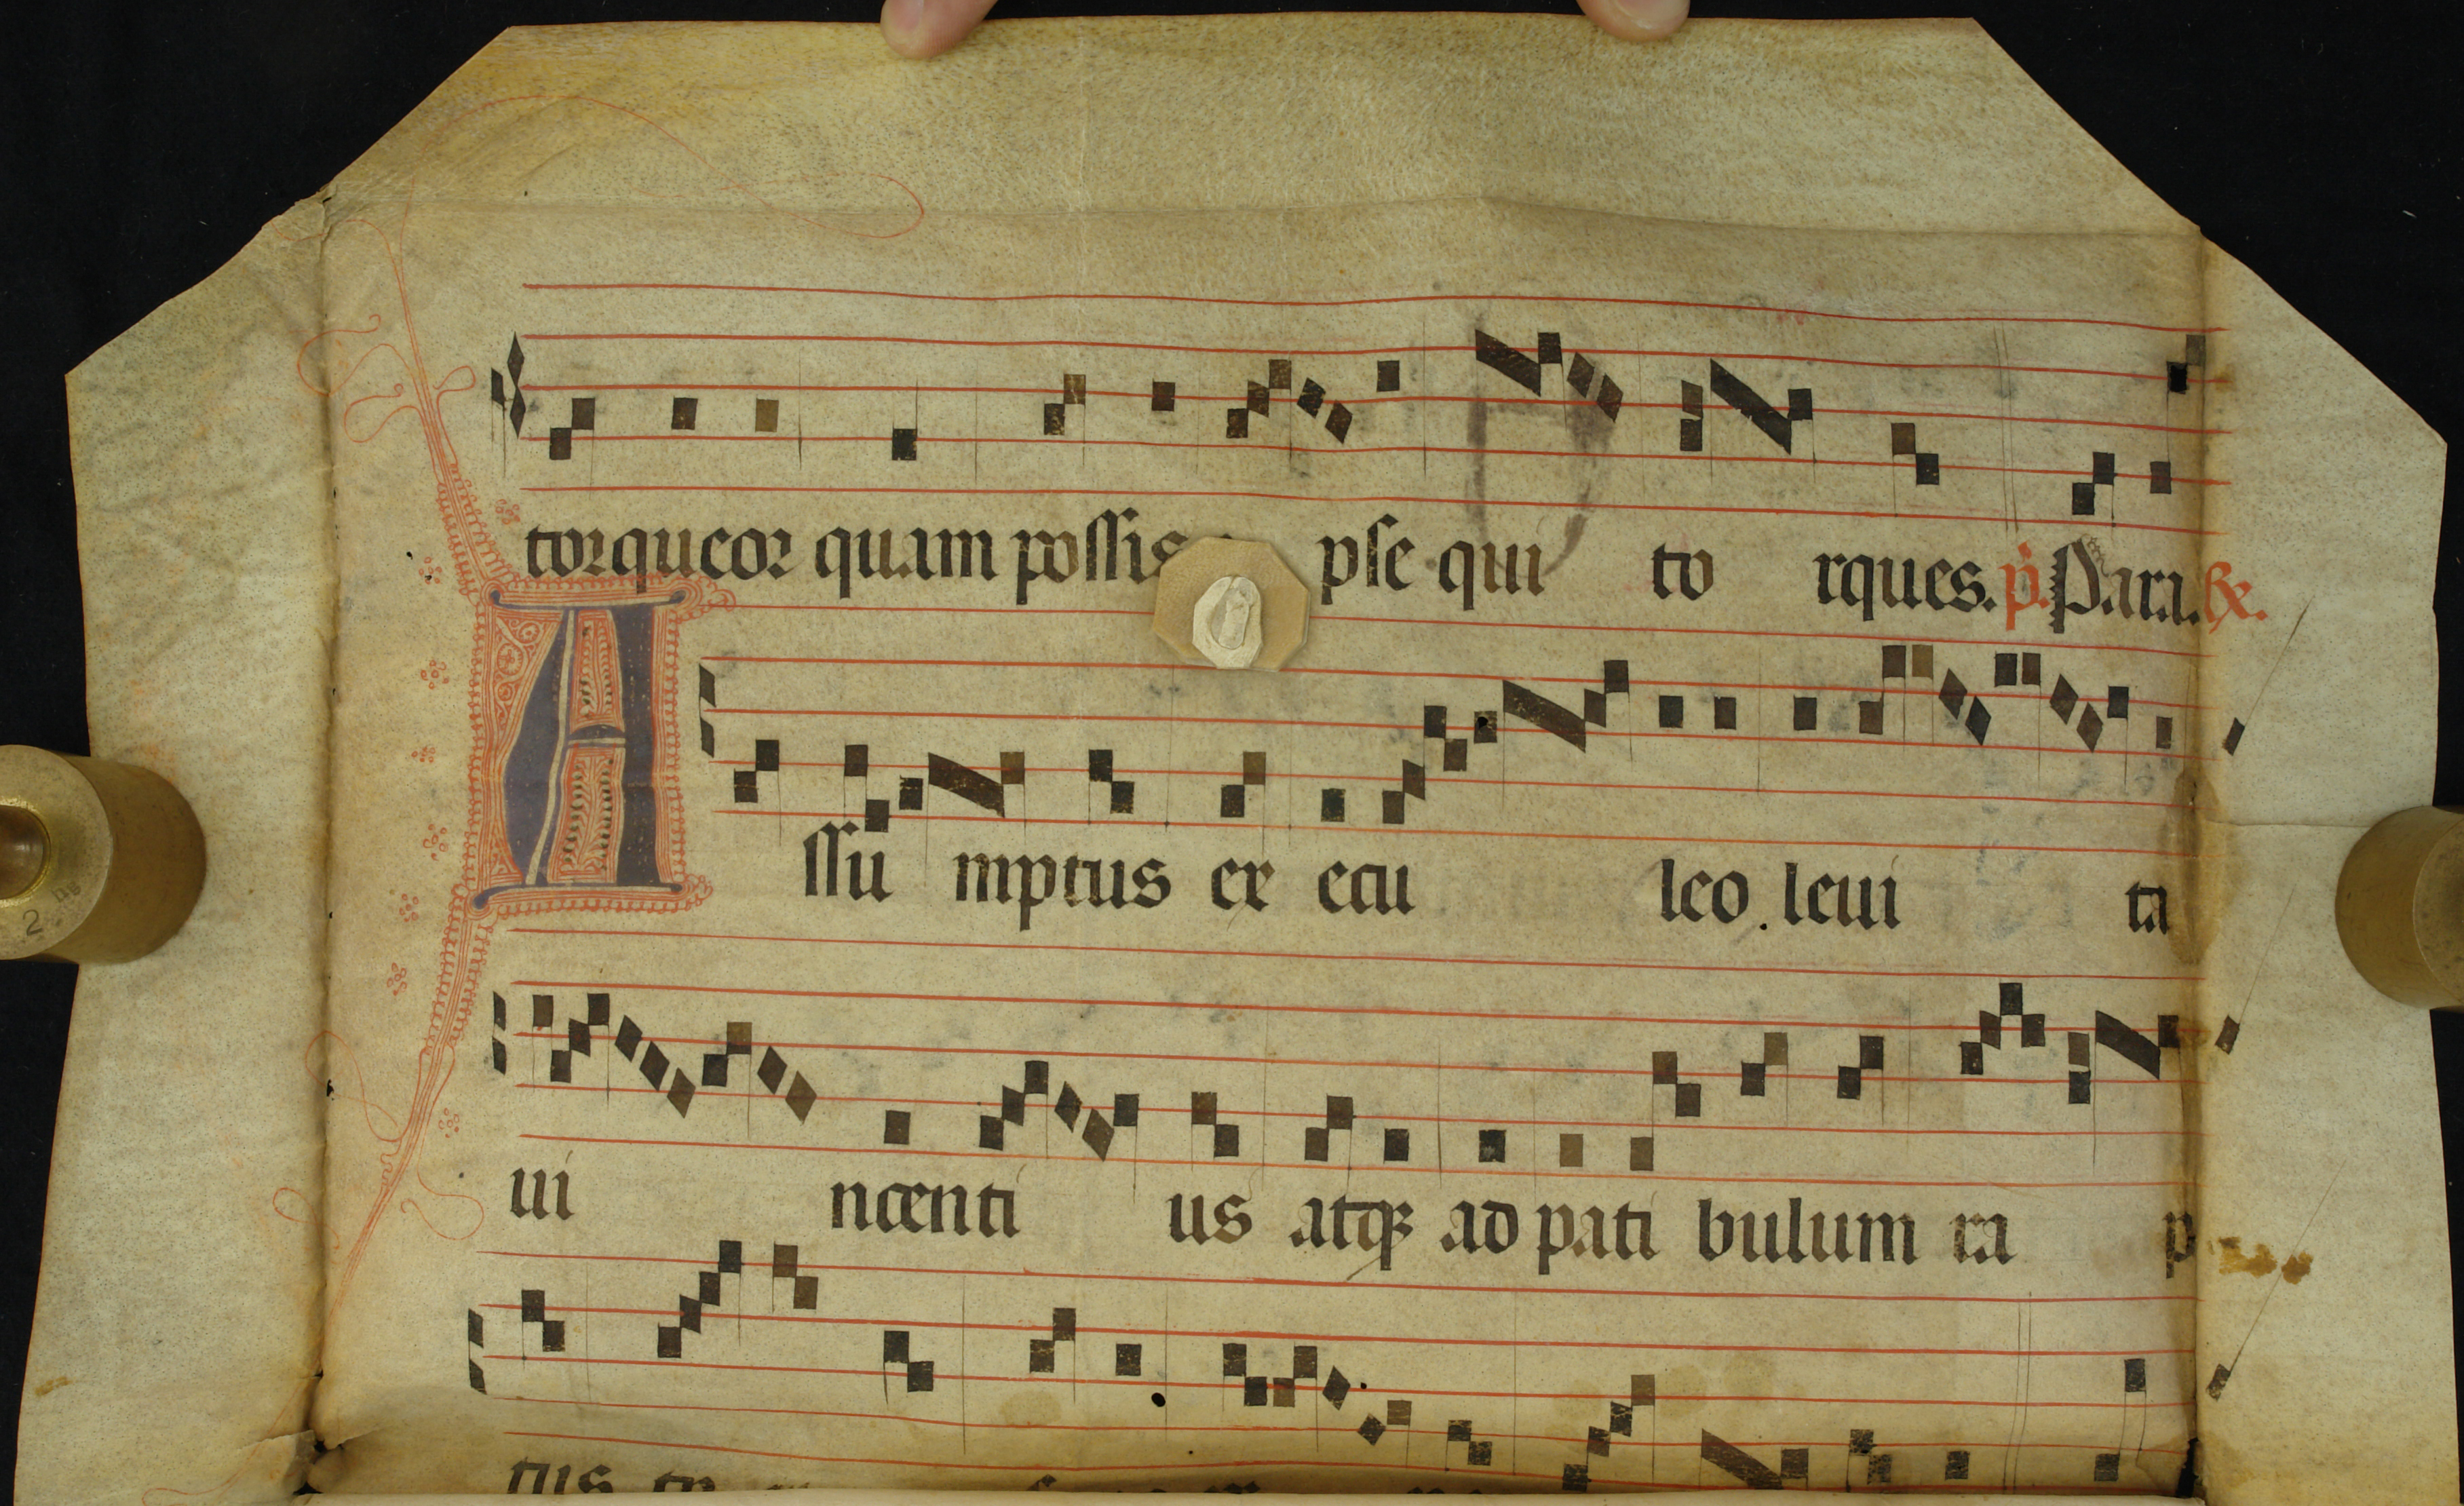 torqueor quam possis pse qui to rques. p. Para. Rx.
A ssu mptus ex ecu leo. leui ta
ui ncenti us atqꝫ ad pati bulum ra p
tus
2